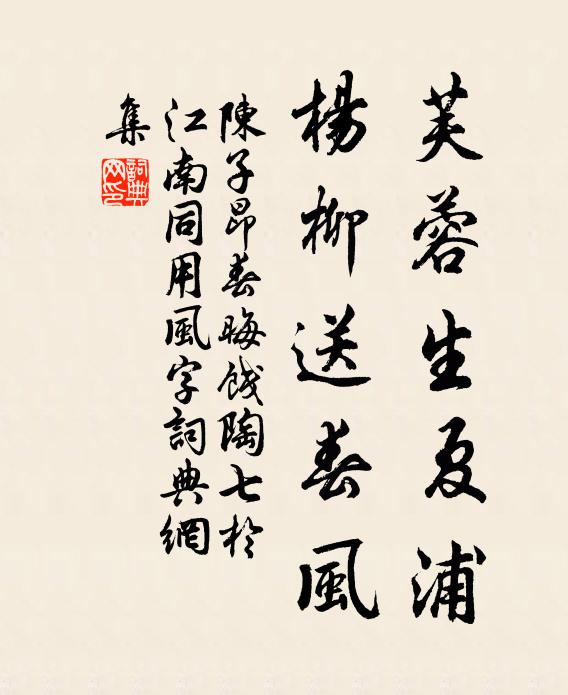 芙蓉生夏浦
楊柳送春風
陳子昂春晦餞陶七於
江南同用風字詞典網
集
詞典網印